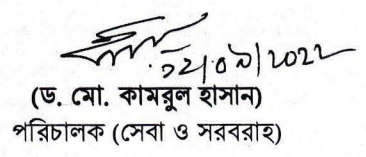 ১২/০৯/2022
(ড. মো. কামরুল হাসান)
পরিচালক (সেবা ও সরবরাহ)